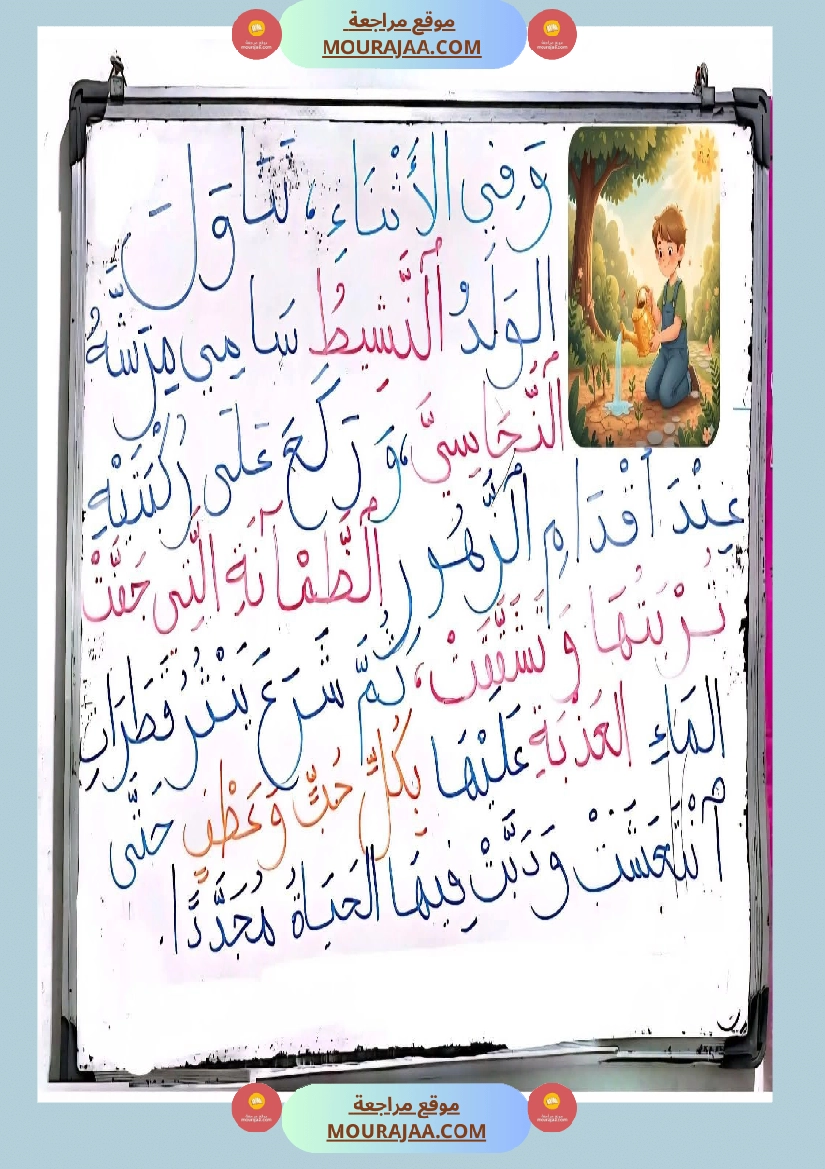 موقع مراجعة
MOURAJAA.COM
وَفِي الأَثْنَاءِ، تَنَاوَلَ
الوَلَدُ ٱلنَّشِيطُ سَامِي مِرَشَّهُ
ٱلنُّحَاسِيَّ، وَرَكَعَ عَلَى رُكْبَتَيْهِ
عِنْدَ أَقْدَامِ ٱلزُّهُورِ ٱلظَّمْآنَةِ الَّتِي جَفَّتْ
تُرْبَتُهَا وَتَشَقَّقَتْ، ثُمَّ شَرَعَ يَنْثُرُ قَطَرَاتِ
المَاءِ العَذْبَةِ عَلَيْهَا بِكُلِّ حُبٍّ وَعَطْفٍ حَتَّى
ٱنْتَعَشَتْ وَدَبَّتْ فِيهَا الحَيَاةُ مُجَدَّدًا.
موقع مراجعة
MOURAJAA.COM